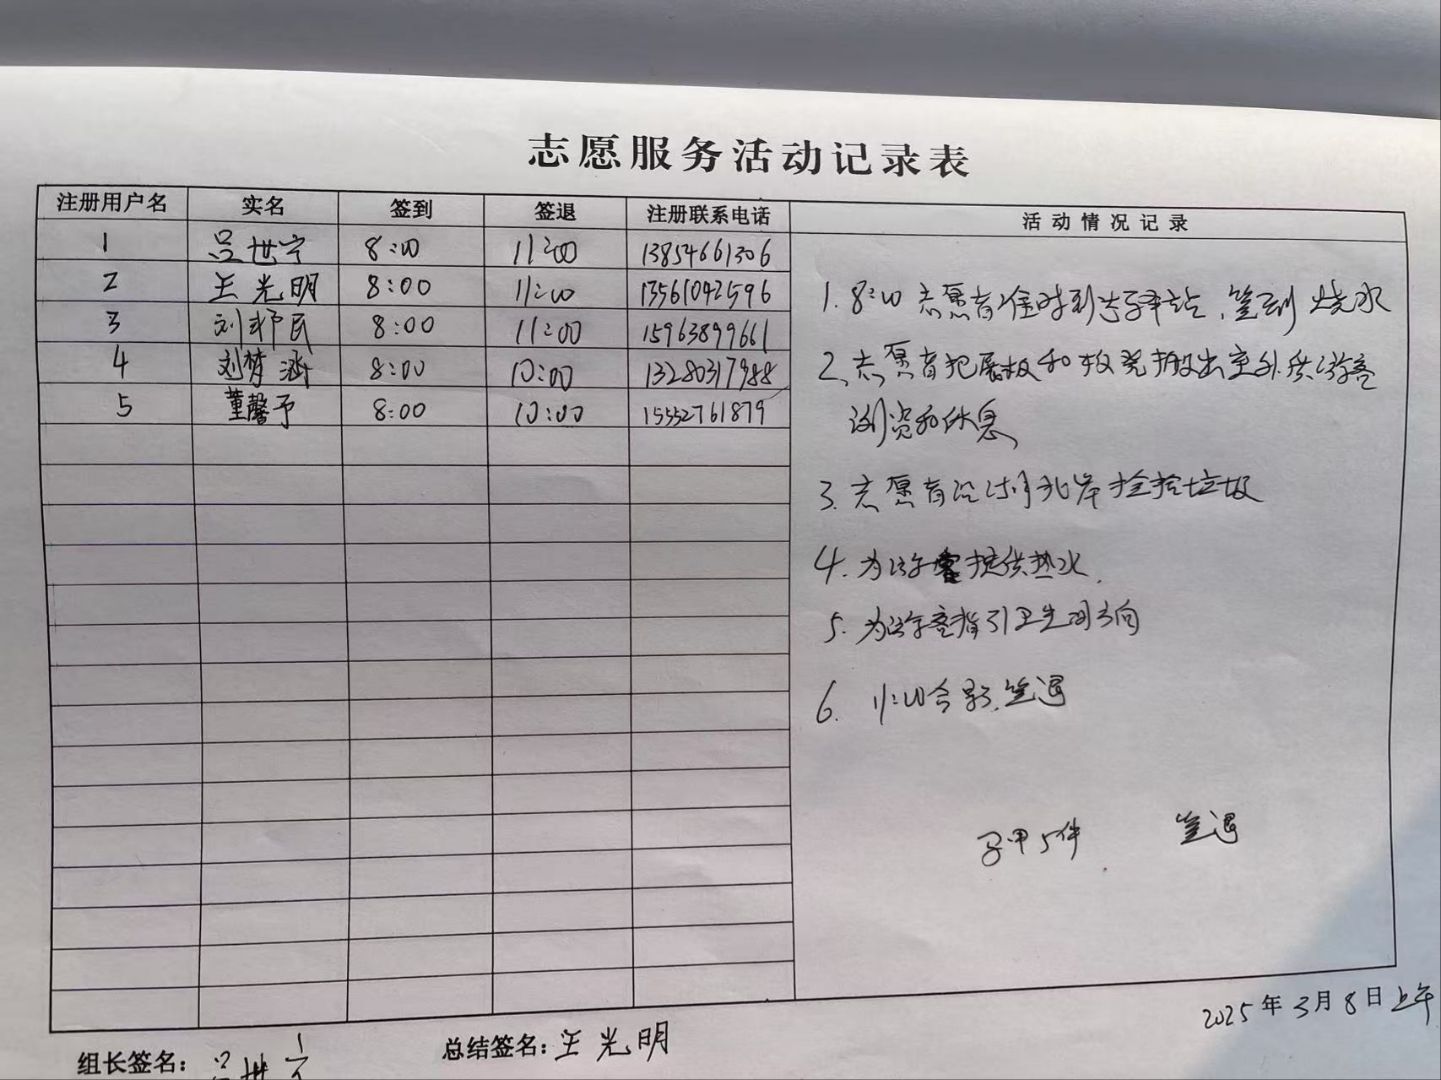 志愿服务活动记录表
注册用户名 实名 签到 签退 注册联系电话 活动情况记录
1 吕世宁 8:00 11:00 13854661306
2 王光明 8:00 11:00 13561042596
3 刘邦民 8:00 11:00 15963899661
4 刘梦涵 8:00 10:00 13280317988
5 董馨予 8:00 10:00 15552761879
1. 8:00 志愿者准时到达驿站,签到 烧水
2、志愿者把展板和板凳搬出室外供游客
浏览和休息
3. 志愿者沿河北岸捡拾垃圾
4. 为游客提供热水.
5. 为游客指引卫生间方向
6. 11:00合影.签退
马甲5件 签退
2025年3月8日上午
组长签名: 吕世宁 总结签名: 王光明